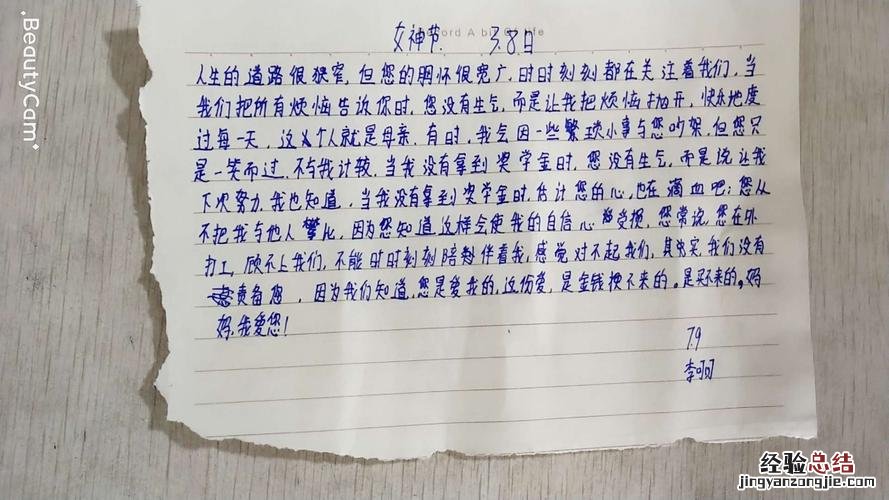 .BeautyCam.
cord A bit Of life
女神节. 3.8日
人生的道路很狭窄,但您的胸怀很宽广,时时刻刻都在关注着我们,当
我们把所有烦恼告诉你时,您没有生气,而是让我把烦恼抛开,快乐地度
过每一天,这个人就是母亲.有时,我会因一些繁琐小事与您吵架,但您只
是一笑而过,不与我计较,当我没有拿到奖学金时,您没有生气,而是说让我
下次努力.我也知道,当我没有拿到奖学金时,估计您的心,也在滴血吧;您从
不把我与他人攀比,因为您知道,这样会使我的自信心受损,您常说,您在外
打工,顾不上我们,不能时时刻刻陪伴着我,感觉对不起我们,其实,我们没有
责备您,因为我们知道,您是爱我的,这份爱,是金钱换不来的。是买不来的。妈
妈,我爱您!
7.9
李
经验总结
jingyanzongjie.com